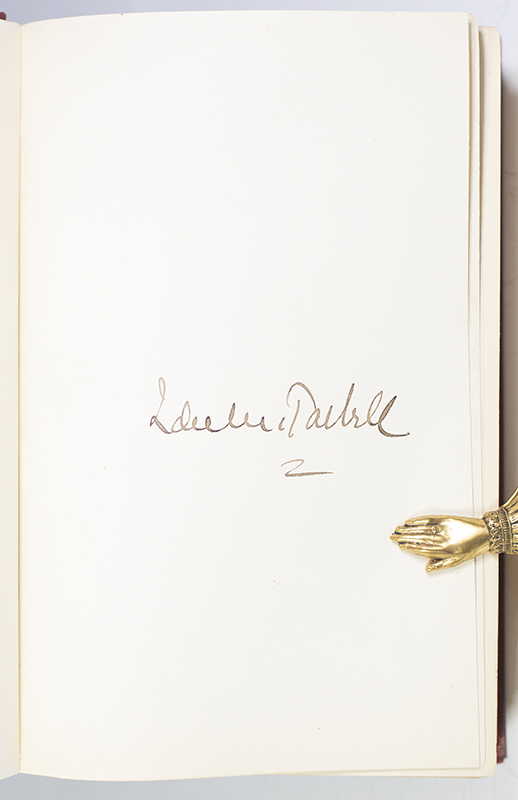 Ida M. Tarbell